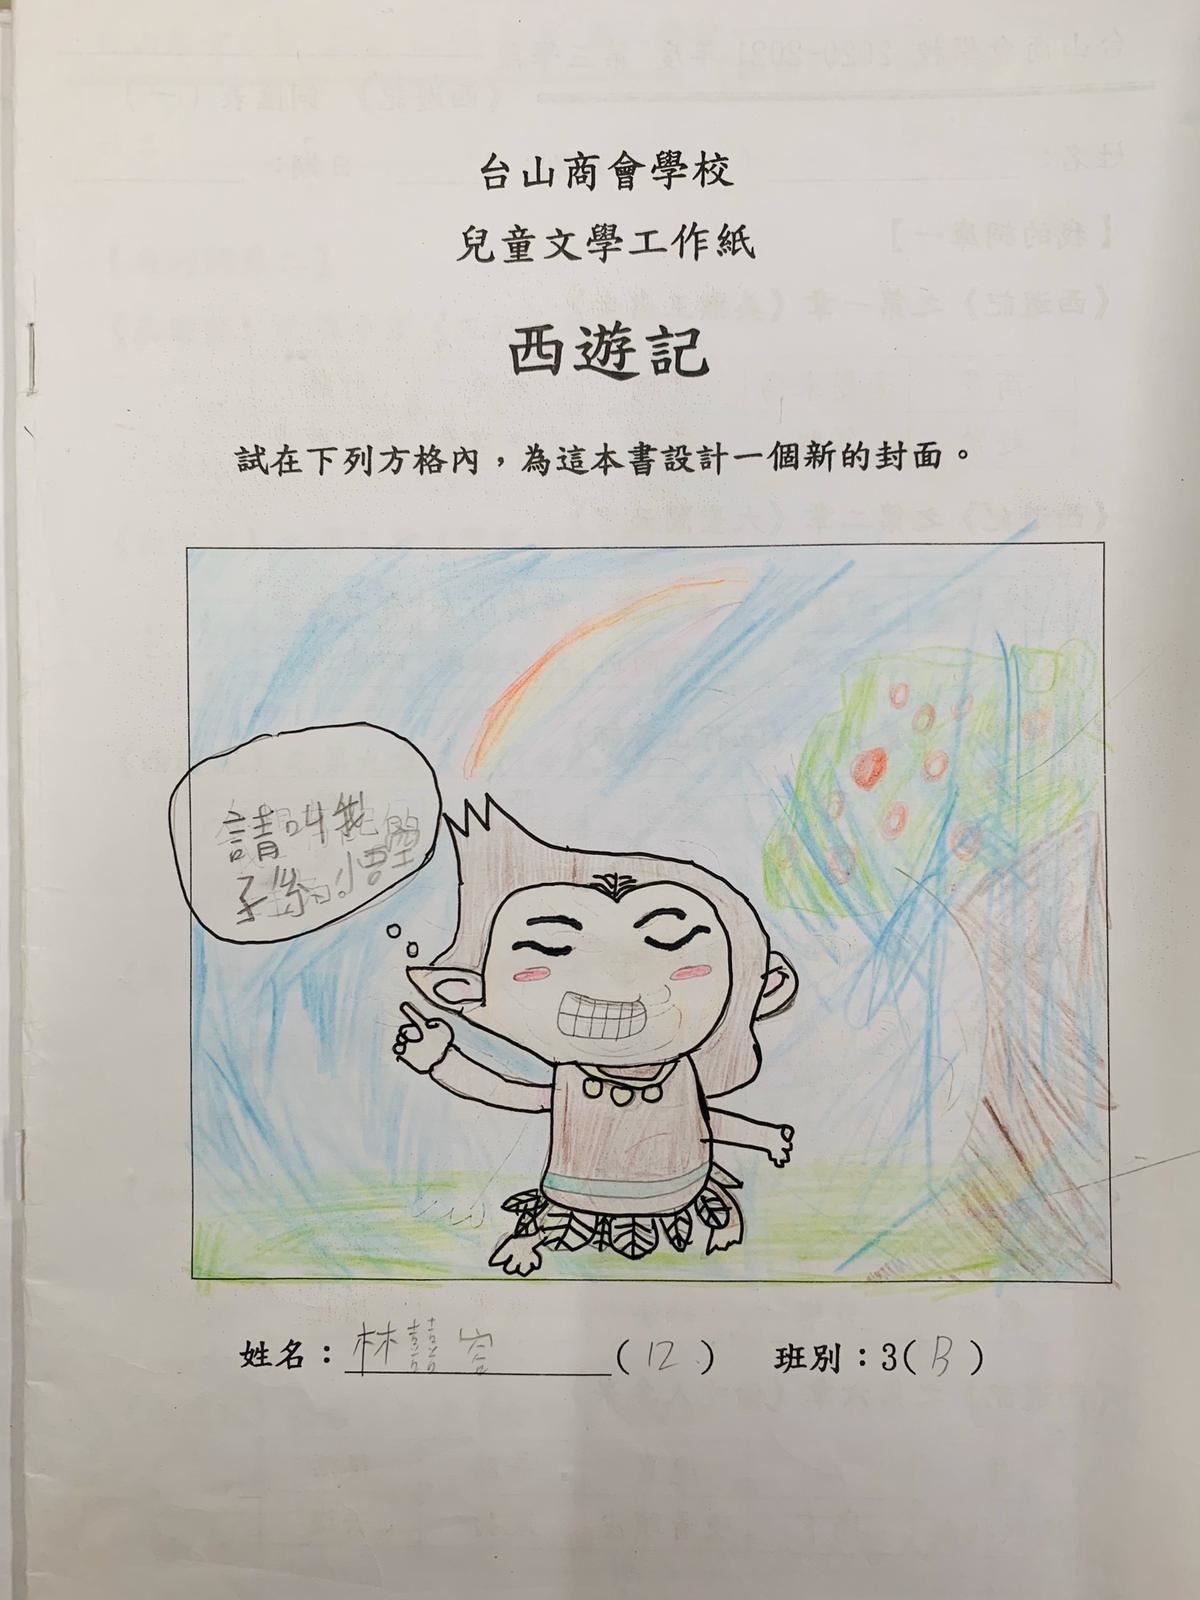 台山商會學校
兒童文學工作紙
西遊記
試在下列方格內，為這本書設計一個新的封面。
請叫我
悟空
姓名：林囍容（12）　班別：3（B）